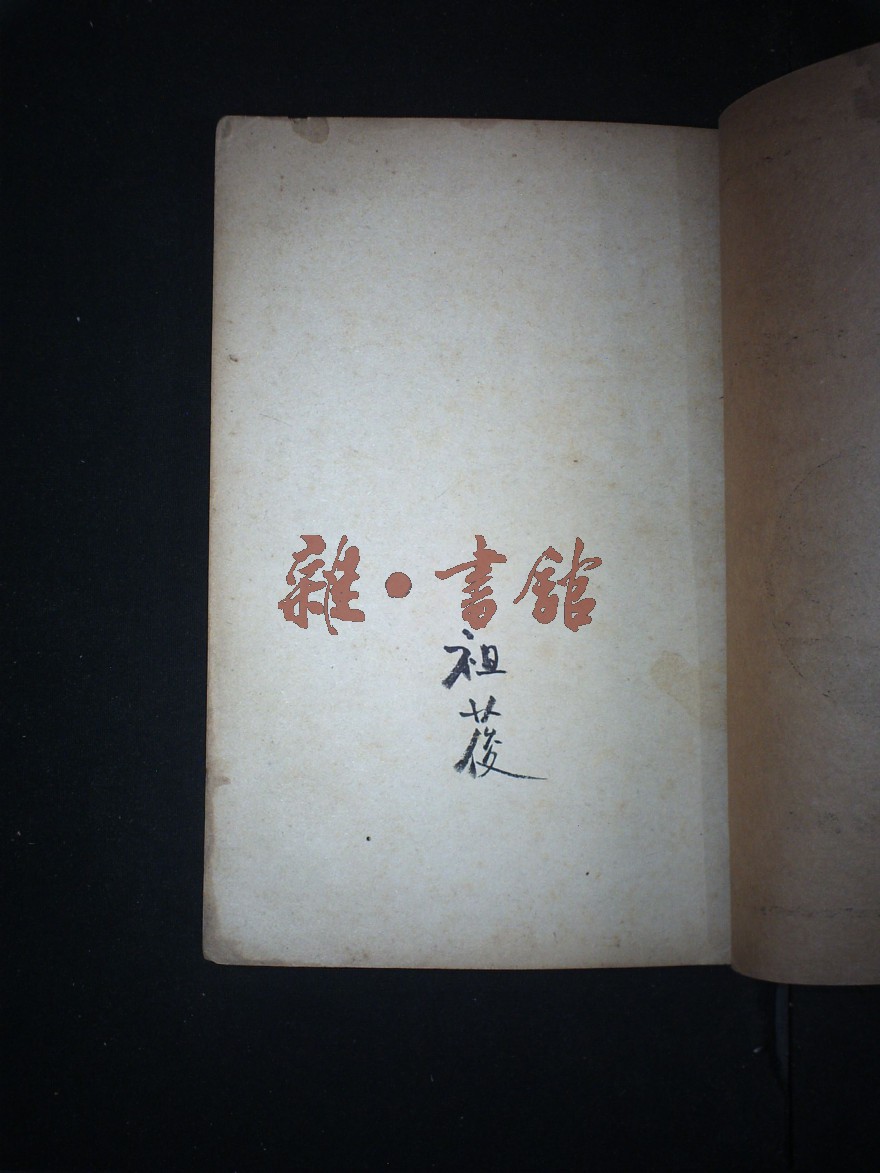 雜·書館
祖葰